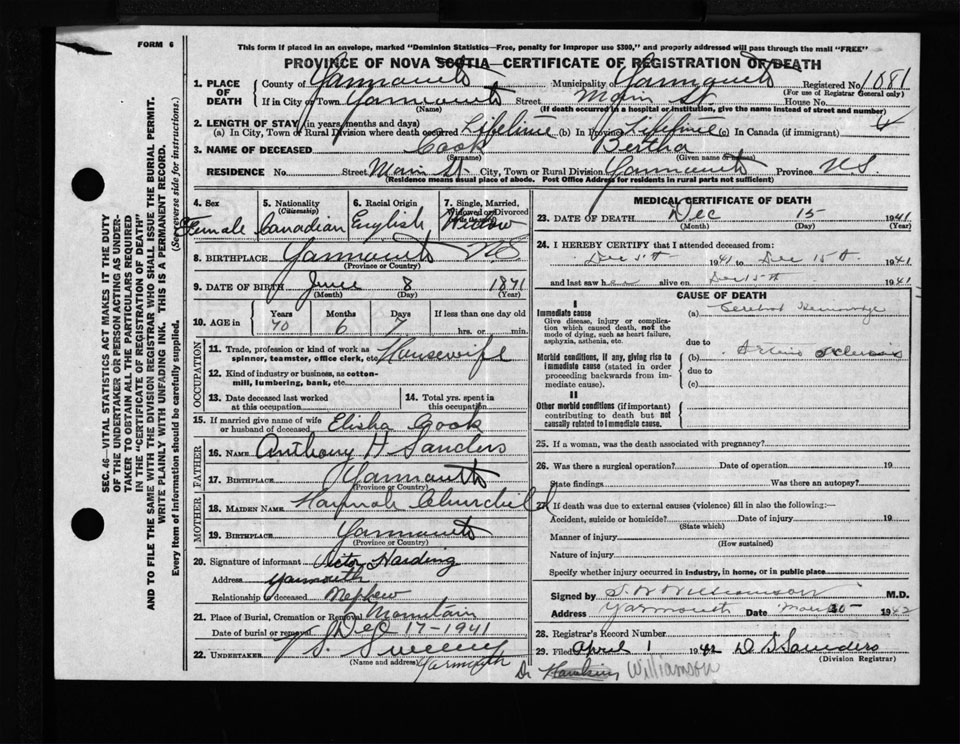 FORM 6
This form if placed in an envelope, marked "Dominion Statistics—Free, penalty for improper use $300," and properly addressed will pass through the mail "FREE"
PROVINCE OF NOVA SCOTIA—CERTIFICATE OF REGISTRATION OF DEATH
1. PLACE OF DEATH County of Yarmouth Municipality of Yarmouth Registered No. 1081
(Name) (For use of Registrar General only)
If in City or Town Yarmouth Street Main St. House No.
(If death occurred in a hospital or institution, give the name instead of street and number)
2. LENGTH OF STAY (in years, months and days)
(a) In City, Town or Rural Division where death occurred Lifetime (b) In Province Lifetime (c) In Canada (if immigrant)
3. NAME OF DECEASED Cook Bertha
(Surname) (Given name or names)
RESIDENCE No. Street Main St. City, Town or Rural Division Yarmouth Province N.S.
(Residence means usual place of abode. Post Office Address for residents in rural parts not sufficient)
4. Sex Female
5. Nationality (Citizenship) Canadian
6. Racial Origin English
7. Single, Married, Widowed or Divorced Widow
8. BIRTHPLACE Yarmouth N.S.
(Province or Country)
9. DATE OF BIRTH June 8 1871
(Month) (Day) (Year)
10. AGE in Years 70 Months 6 Days 7 If less than one day old
hrs. or min.
OCCUPATION
11. Trade, profession or kind of work as spinner, teamster, office clerk, etc. Housewife
12. Kind of industry or business, as cotton-mill, lumbering, bank, etc.
13. Date deceased last worked at this occupation
14. Total yrs. spent in this occupation
15. If married give name of wife or husband of deceased Elisha Cook
FATHER
16. NAME Anthony H Sanders
17. BIRTHPLACE Yarmouth
(Province or Country)
MOTHER
18. MAIDEN NAME Hannah Churchill
19. BIRTHPLACE Yarmouth
(Province or Country)
20. Signature of informant Harding
Address Yarmouth
Relationship to deceased Nephew
21. Place of Burial, Cremation or Removal Mountain
Date of burial or removal Dec 17-1941
22. UNDERTAKER V S. Sweeny
(Name and address) Yarmouth
MEDICAL CERTIFICATE OF DEATH
23. DATE OF DEATH Dec 15 1941
(Month) (Day) (Year)
24. I HEREBY CERTIFY that I attended deceased from:
Dec 5th 1941 to Dec 15th 1941
and last saw h alive on Dec 15th 1941
CAUSE OF DEATH
I
Immediate cause
Give disease, injury or complication which caused death, not the mode of dying, such as heart failure, asphyxia, asthenia, etc.
(a) Cerebral Hemorrhage
due to
Morbid conditions, if any, giving rise to immediate cause (stated in order proceeding backwards from immediate cause).
(b) Arterio Sclerosis
due to
(c)
II
Other morbid conditions (if important) contributing to death but not causally related to immediate cause.
25. If a woman, was the death associated with pregnancy?
26. Was there a surgical operation? Date of operation 19
State findings Was there an autopsy?
27. If death was due to external causes (violence) fill in also the following:—
Accident, suicide or homicide? Date of injury 19
(State which)
Manner of injury
(How sustained)
Nature of injury
Specify whether injury occurred in industry, in home, or in public place
Signed by S. W Williamson M.D.
Address Yarmouth Date 1942
28. Registrar's Record Number
29. Filed April 1 1942 D S Saunders
(Division Registrar)
Dr Hawkins Williamson
SEC. 46—VITAL STATISTICS ACT MAKES IT THE DUTY
OF THE UNDERTAKER OR PERSON ACTING AS UNDER-
TAKER TO OBTAIN ALL THE PARTICULARS REQUIRED
IN THE "CERTIFICATE OF REGISTRATION OF DEATH"
AND TO FILE THE SAME WITH THE DIVISION REGISTRAR WHO SHALL ISSUE THE BURIAL PERMIT.
WRITE PLAINLY WITH UNFADING INK. THIS IS A PERMANENT RECORD.
Every item of information should be carefully supplied. (See reverse side for instructions.)